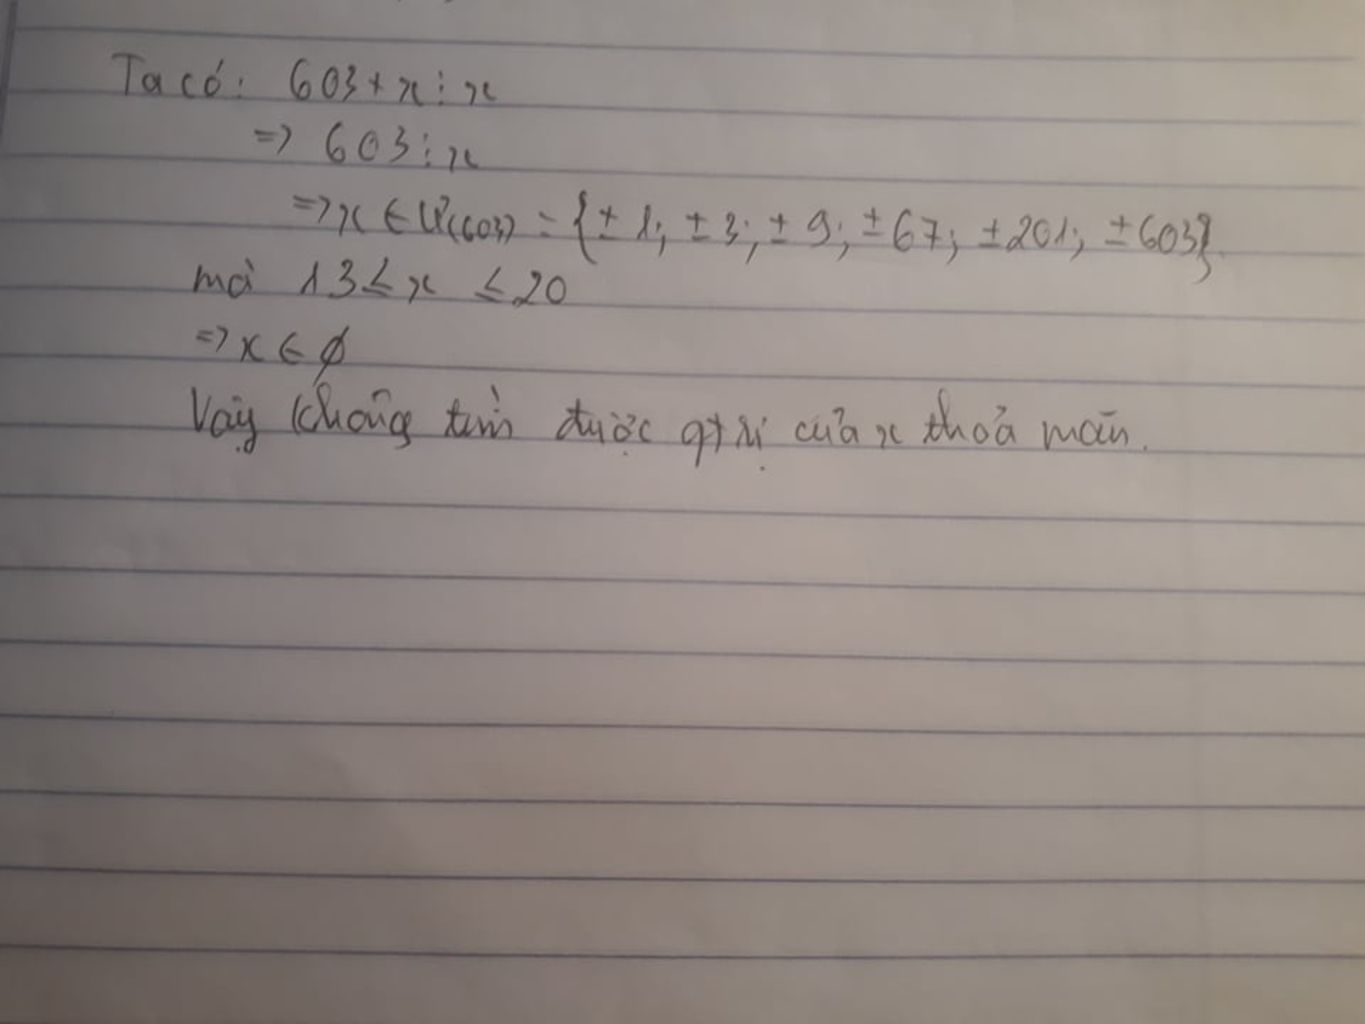 Ta có: 603 + x ⋮ x
=> 603 ⋮ x
=> x ∈ Ư(603) = {± 1; ± 3; ± 9; ± 67; ± 201; ± 603}.
mà 13 ≤ x ≤ 20
=> x ∈ ∅
Vậy không tìm được gtrị của x thoả mãn.